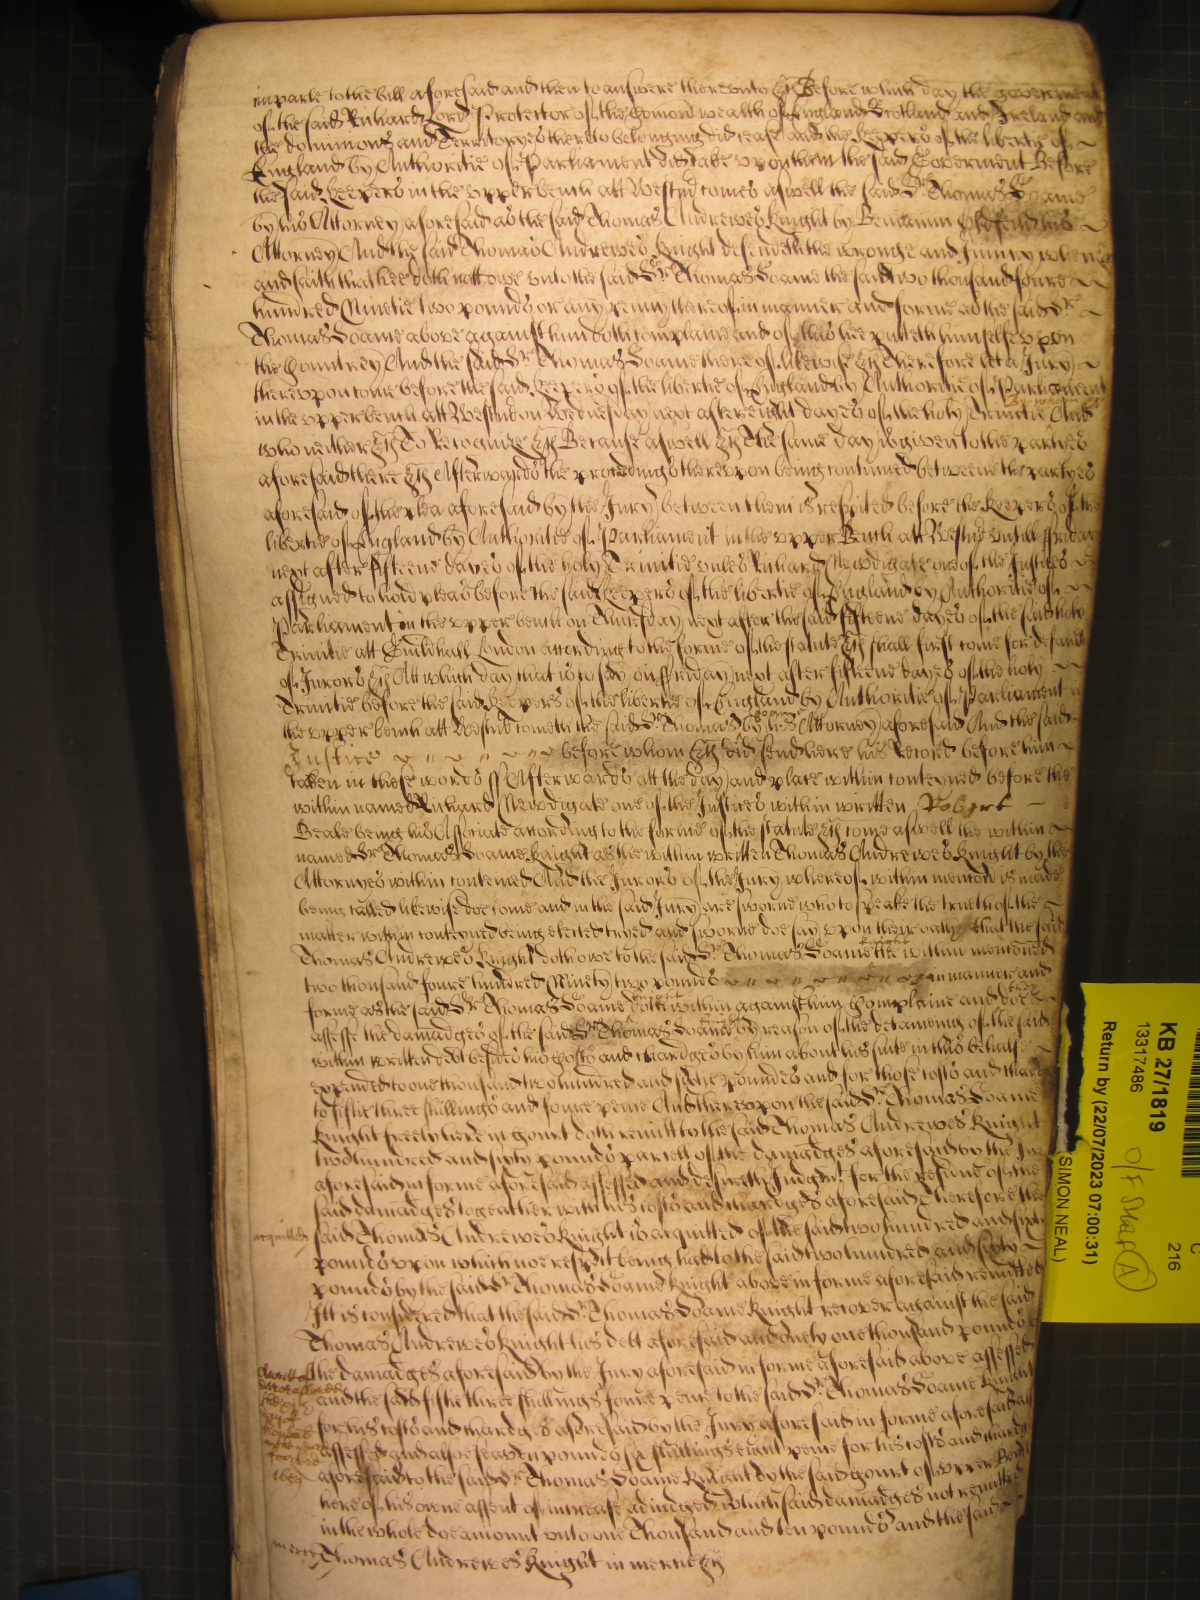 imparle to the bill aforesaid and then to answere thereunto &c Before which day the government
of the said Richard Lord Protector of the Comon wealth of England Scotland and Ireland and
the dominions and Territoryes thereto belonging did cease and the keepers of the libertie of
England by Authoritie of Parliament did take upon them the said Goverment Before
the said keepers in the upper bench att Westmr comes aswell the said Sr Thomas Soame
by his Attorney aforesaid as the said Thomas Andrewes Knight by Beniamin his
Attorney And the said Thomas Andrewes Knight defendeth the wronge and Iniury when &c
and saith that hee doth nott owe unto the said Sr Thomas Soame the said two thousand foure
hundred Ninetie two pounds or any penny thereof in manner and forme as the said Sr
Thomas Soame above against him doth complaine and of this hee putteth himselfe upon
the Countrey And the said Sr Thomas Soame thereof likewise &c Therefore let a Jury
thereupon come before the said keepers of the libertie of England by Authoritie of Parliament
in the upper bench att Westmr on Wednesday next after eight dayes of the holy Trinitie And
who neither &c To Recognize &c Because aswell &c The same day is given to the parties
aforesaid there &c Afterwards the proceedings thereupon being continued betweene the partyes
aforesaid of the plea aforesaid by the Jury between them is respited before the Keepers of the
libertie of England by Authoritie of Parliament in the upper Bench att Westmr untill Friday
next after fifteene dayes of the holy Trinitie unles Richard Newdigate one of the Justices
assigned to hold pleas before the said keepers of the libertie of England by Authoritie of
Parliament in the upper bench on Thursday next after the said fifteene dayes of the said holy
Trinitie att Guildhall London according to the forme of the statute &c shall first come for default
of Jurors &c Att which day that is to say on Friday next after fifteene dayes of the holy
Trinitie before the said keepers of the libertie of England by Authoritie of Parliament in
the upper bench att Westmr cometh the said Sr Thomas Soame by his Attorney aforesaid And the said
Justice before whom &c did send here his Record before him
taken in these words ss Afterwards att the day and place within conteyned before the
within named Richard Newdigate one of the Justices within written Robert
Beale being his Associate according to the forme of the statute &c come aswell the within
named Sr Thomas Soame Knight as the within written Thomas Andrewes Knight by the
Attornyes within conteined And the Jurors of the Jury whereof within mencon is made
being called likewise doe come and in the said Jury are sworne who to speake the trueth of the
matter within conteyned being elected tryed and sworne doe say upon their oath that the said
Thomas Andrewes Knight doth owe to the said Sr Thomas Soame Knight the within mencioned
two thousand foure hundred Ninety two pounds in manner and
forme as the said Sr Thomas Soame doth within against him Complaine and they doe
assesse the damadges of the said Sr Thomas Soame by reason of the deteineing of the said
within written debt besides his Costs and chardges by him about his suite in this behalfe
expended to one thousand two hundred and sixtie poundes and for those costs and chardges
to fiftie three shillings and foure pence And thereupon the said Sr Thomas Soame
Knight freely here in Court doth remitt to the said Thomas Andrewes Knight
two hundred and sixty pounds parcell of the damadges aforesaid by the Jury
aforesaid in forme aforesaid assessed and desireth Judgmt for the residue of the
said damadges together with his costs and chardges aforesaid Therefore the
acquitted
said Thomas Andrewes Knight is acquitted of the said two hundred and sixty
pounds upon which no respit being had to the said two hundred and sixty
pounds by the said Sr Thomas Soame Knight above in forme aforesaid remitted
Itt is considered that the said Sr Thomas Soame Knight recover against the said
Thomas Andrewes Knight his debt aforesaid and onely one thousand pounds of
the damadges aforesaid by the Jury aforesaid in forme aforesaid above assessed
and the said fiftie three shillings foure pence to the said Sr Thomas Soame Knight
for his costs and chardges aforesaid by the Jury aforesaid in forme aforesaid
assessed and alsoe seaven pounds six shillings eight pence for his costs and chardges
aforesaid to the said Sr Thomas Soame Knight by the said Court of upper Bench
here of his owne assent of increase adiudged Which said damadges not remitted
in the whole doe amount unto one Thousand and ten pounds And the said
mercy
Thomas Andrewes Knight in mercie &c
KB 27/1819
13317486
Return by (22/07/2023 07:00:31)
SIMON NEAL)
216
C
A